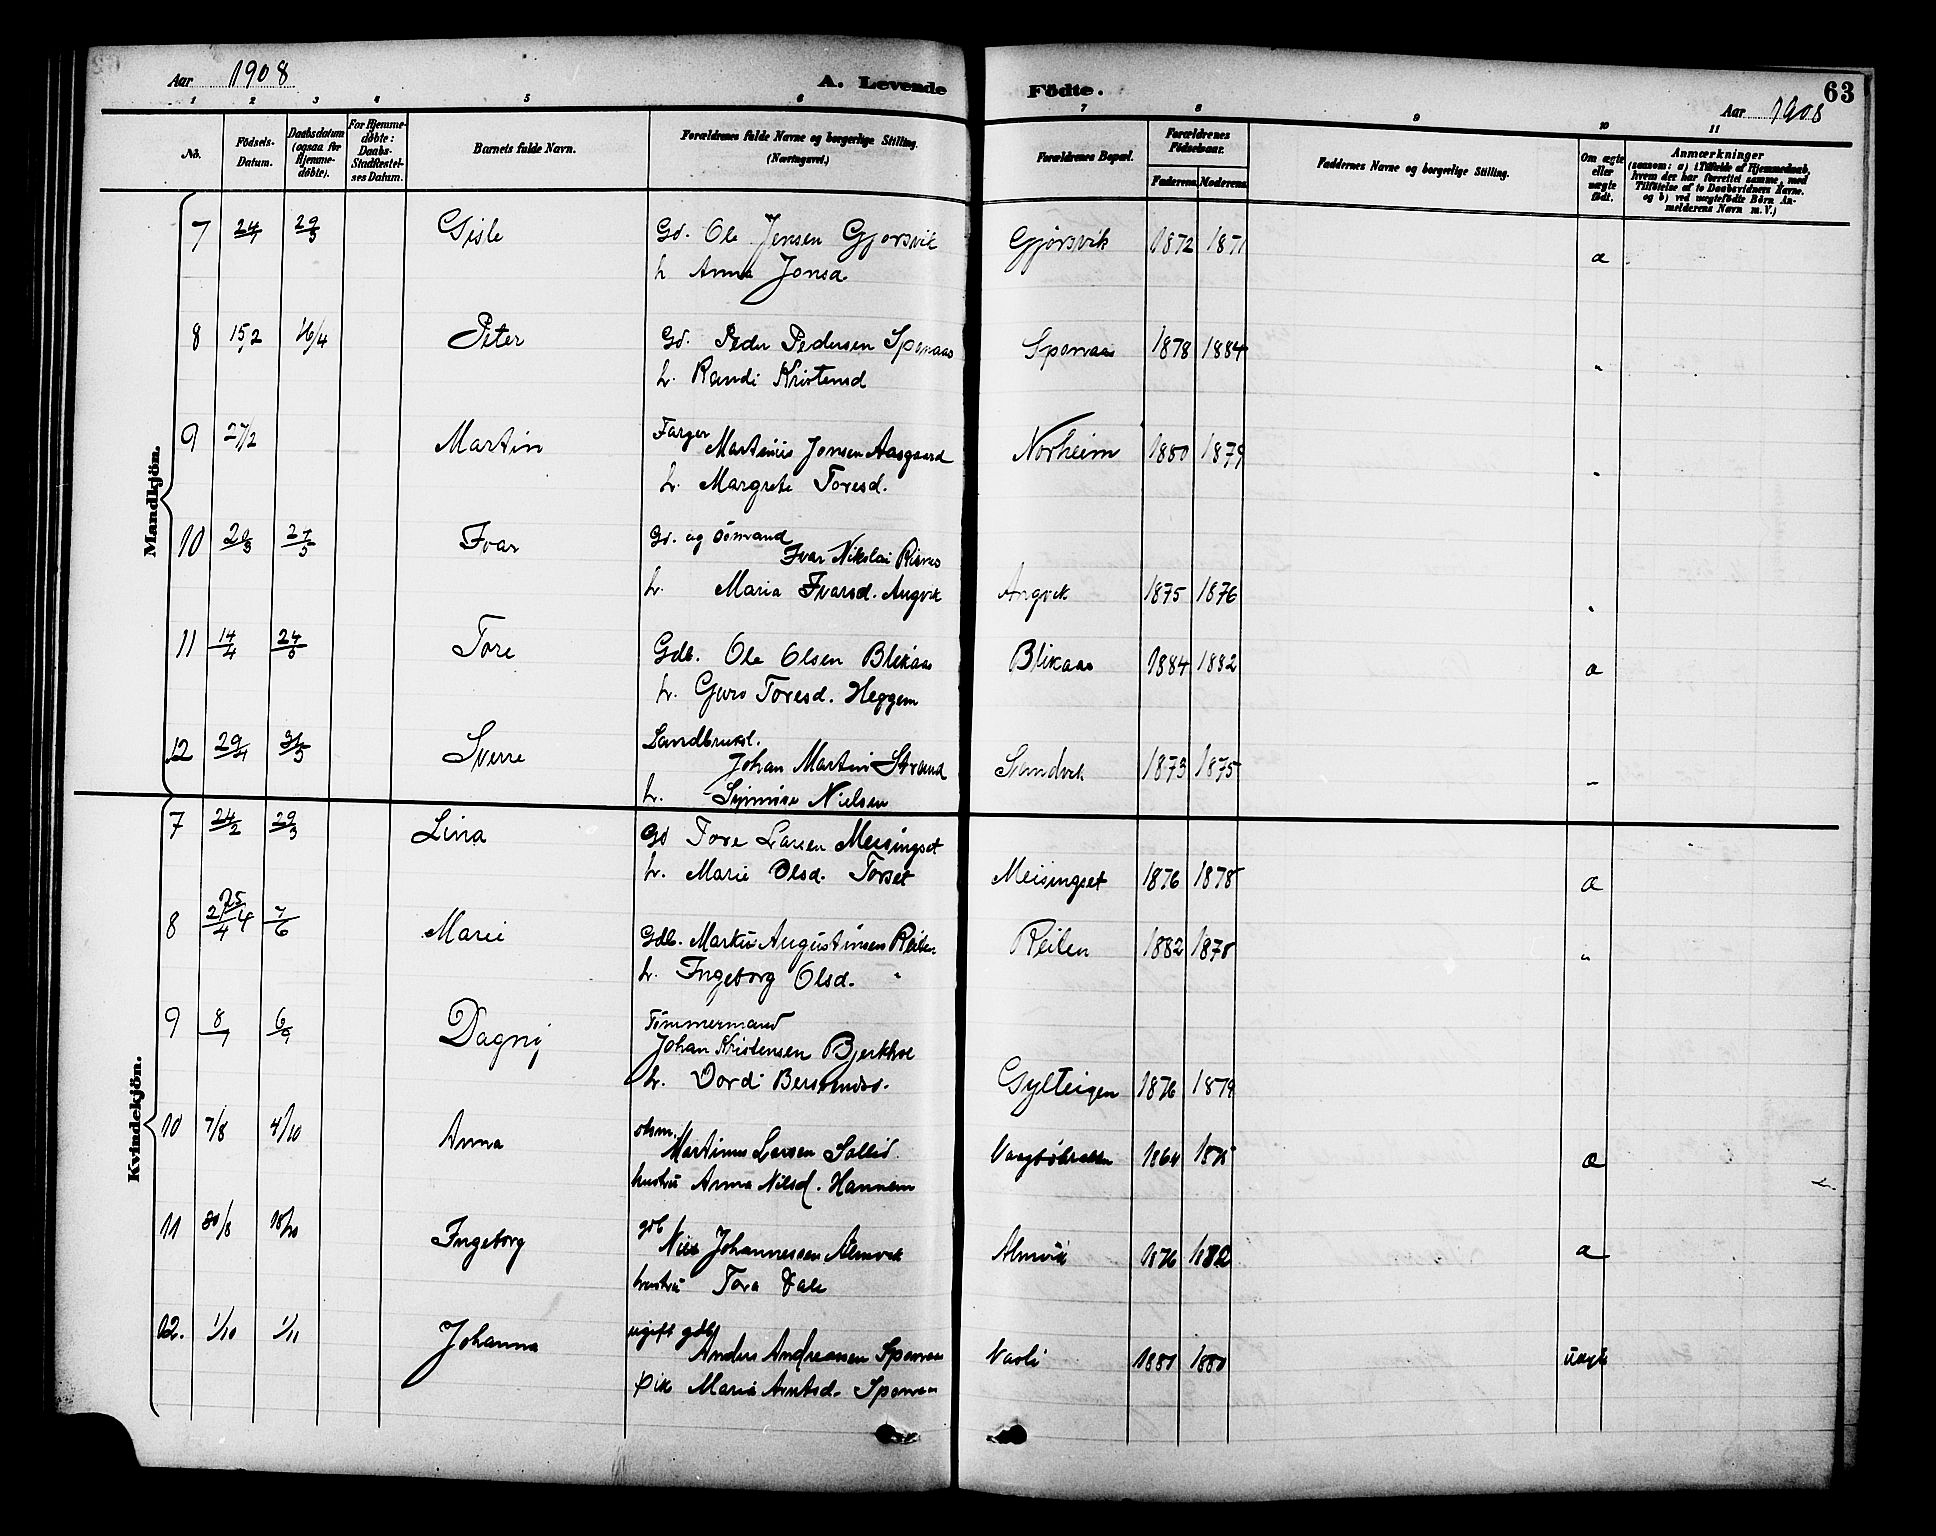 Aar 1908
A. Levende Födte.
63
Aar 1908
1 2 3 4 5 6 7 8 9 10 11
No.
Födsels-Datum.
Daabsdatum (ogsaa for Hjemme-døbte).
For Hjemme-døbte: Daabs-Stadfæstel-ses Datum.
Barnets fulde Navn.
Forældrenes fulde Navne og borgerlige Stilling. (Næringsvei.)
Forældrenes Bopæl.
Forældrenes Fødselsaar.
Faderens Moderens
Faddernes Navne og borgerlige Stilling.
Om ægte eller uægte født.
Anmærkninger
(saasom: a) i Tilfælde af Hjemmedaab, hvem der har forrettet samme, med Tilføielse af to Daabsvidners Navne. og b) ved uægtefødte Børn An-melderens Navn m. V.)
Mandkjön.
7 29/3 Gisle Gd. Ole Jensen Gjørsvik Gjørsvik 1872 1871
h Anna Jonsd. æ
8 15/2 Peter Gd. Peder Pedersen Spornaas Spornaas 1878 1884
h. Randi Kristensd "
9 27/2 Martin Farger Martinus Jonsen Aasgaard Norheim 1880 1879
h. Margrete Toresd. "
10 27/5 Ivar Gd. og Ivar Nikolai
h. Maria Ivarsd. Angvik Angvik 1875 1876 "
11 14/4 24/5 Tore Gdb. Ole Olsen Blikaas Blikaas 1884 1882 æ
h. Guro Toresd. Heggem
12 29/4 31/5 Sverre Landbruksl.
Johan Martin Strand Sandvik 1873 1875
h. Synnøve Nielsen
Kvindekjön.
7 24/2 29/3 Lina Gd Tore Larsen Meisingset
h. Marie Olsd. Torset Meisingset 1876 1878 æ
8 7/6 Marie Gdb. Augustinsen Reiten Reiten 1882 1878 "
h. Ingeborg Olsd. "
9 Dagny Tømmermand
Johan Kristensen Bjerkhol
h. Dordi Gylteigen 1876 1879
10 7/8 4/10 Anna Martinus Larsen Sollid 1864 æ
hustru Anna Nilsd. Hannem
11 30/8 18/10 Ingeborg gdb Nils Johannessen Almvik Almvik 1876 1882 æ
hustru Tora Vale
12. 1/10 1/11 Johanna ugift gdb
Anders Andreassen Spornaas 1881 1880 uægte
Pik Maria Arntsd. Spornaas